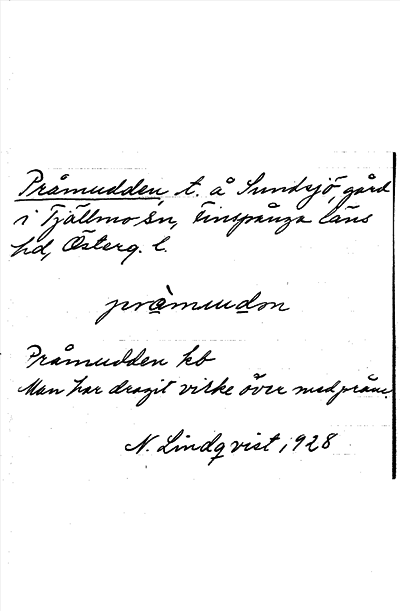 Pråmudden, t. å Sundsjö, gård
i Tjällmo sn, Finspånga läns
hd, Österg. l.
pråmuudn
Pråmudden kb
Man har dragit virke över med pråm.
N. Lindqvist, 1928